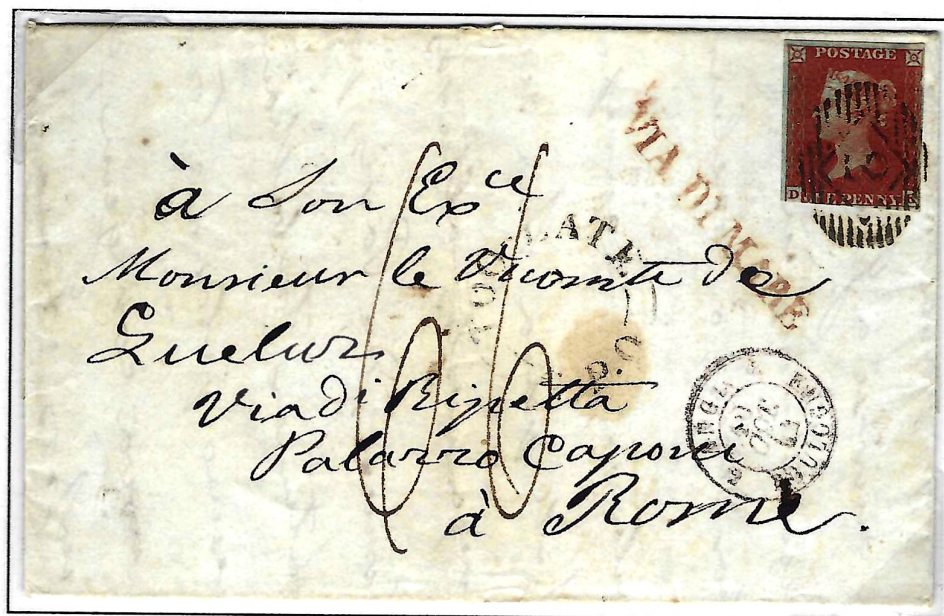 POSTAGE
D E
ONE PENNY
VIA DI MARE
TOO LATE
à Son Exce
Monsieur le Vicomte de
Queluz
Via di Ripetta
Palazzo Caponi
à Rome.
66